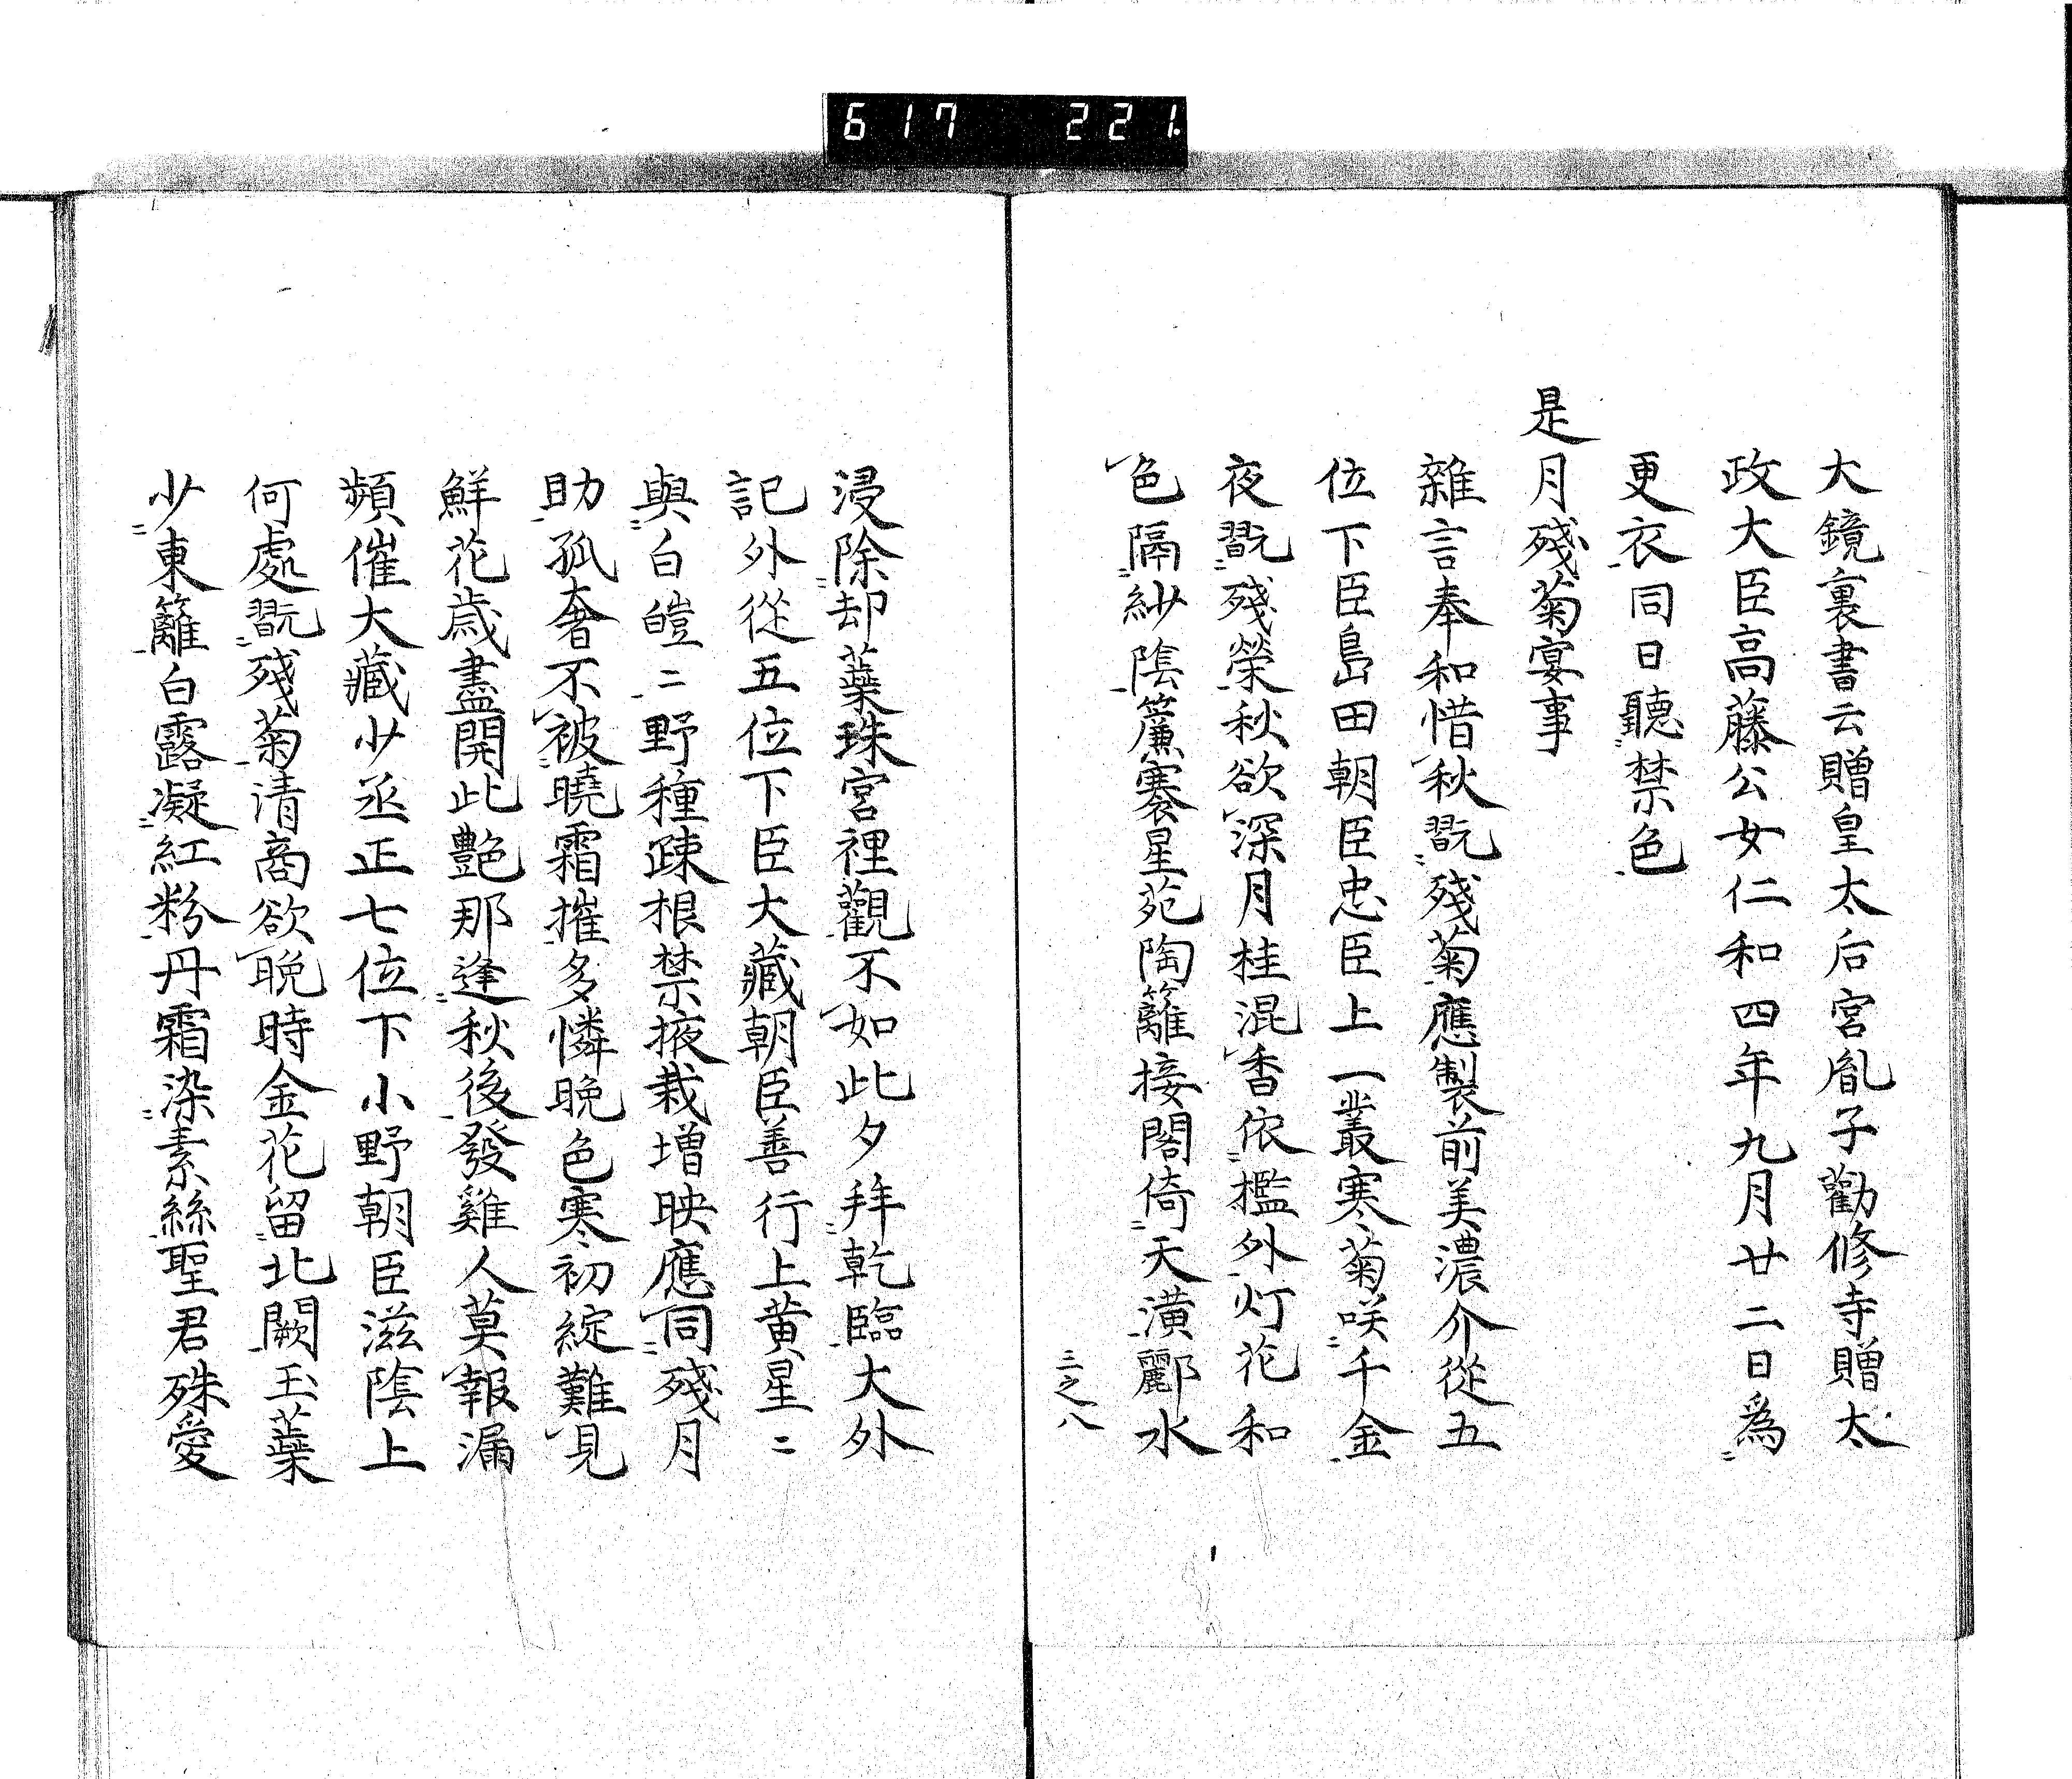 617 221.
大鏡裏書云贈皇太后宮胤子勸修寺贈太
政大臣高藤公女仁和四年九月廿二日為
更衣同日聽禁色
是月殘菊宴事
雜言奉和惜秋翫殘菊應製前美濃介從五
位下臣島田朝臣忠臣上一叢寒菊咲千金
夜翫殘榮秋欲深月桂混香依檻外灯花和
色隔紗陰簾褰星苑陶籬接閣倚天潢酈水
三之八
浸除却蘂珠宮裡觀不如此夕拜乾臨大外
記外從五位下臣大藏朝臣善行上黄星〻
與白皚〻野種疎根禁掖栽増映應同殘月
助孤奢不被曉霜摧多憐晩色寒初綻難見
鮮花歳盡開此艶那逢秋後發雞人莫報漏
頻催大藏少丞正七位下小野朝臣滋陰上
何處翫殘菊清商欲晩時金花留北闕玉蘂
少東籬白露凝紅粉丹霜染素絲聖君殊愛